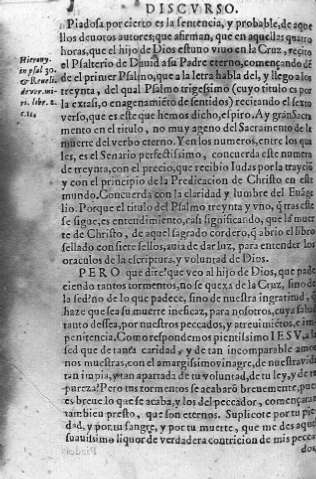 DISCVRSO.
Piadosa por cierto es la sentencia, y probable, de aque
llos deuotos autores, que afirman, que en aquellas quatro
horas, que el hijo de Dios estuuo viuo en la Cruz, recitò
el Psalterio de Dauid a su Padre eterno, començando dē
de el primer Psalmo, que a la letra habla del, y llego a los
treynta, del qual Psalmo trigessimo (cuyo titulo es por
la extasi, o enagenamiēto de sentidos) recitando el sexto
verso, que es este que hemos dicho, espiro. Ay gran Sacra
mento en el titulo, no muy ageno del Sacramento de la
muerte del verbo eterno. Y en los numeros, entre los qua
les, es el Senario perfectissimo, concuerda este numero
de treynta, con el precio, que recibio Iudas por la trayciō
y con el principio de la Predicacion de Christo en este
mundo. Concuerda con la claridad y lumbre del Euāge
lio. Porque el titulo del Psalmo treynta y vno, q̃ tras este
se sigue, es entendimiento, casi significando, que la muer
te de Christo, de aquel sagrado cordero, q̃ abrio el libro
sellado con siete sellos, auia de dar luz, para entender los
oraculos de la escriptura, y voluntad de Dios.
PERO que dire? que veo al hijo de Dios, que pade
ciendo tantos tormentos, no se quexa de la Cruz, sino de
la sed? no de lo que padece, sino de nuestra ingratitud, q̃
haze que sea su muerte ineficaz, para nosotros, cuya salud
tanto dessea, por nuestros peccados, y atreuimiētos, e im
penitencia. Como respondemos pientissimo IESV, a la
sed que de tanta caridad, y de tan incomparable amor
nos muestras, con el amargissimo vinagre, de nuestra vida
tan impia, y tan apartada de tu voluntad, de tu ley, y de tu
pureza? Pero tus tormentos se acabarō breuemente, pues
es breue lo que se acaba, y los del peccador, començaran
tambien presto, que son eternos. Suplicote por tu pie
dad, y por tu sangre, y por tu muerte, que me des aquel
suauissimo liquor de verdadera contricion de mis pecca
dos
Hierony.
in psal 30.